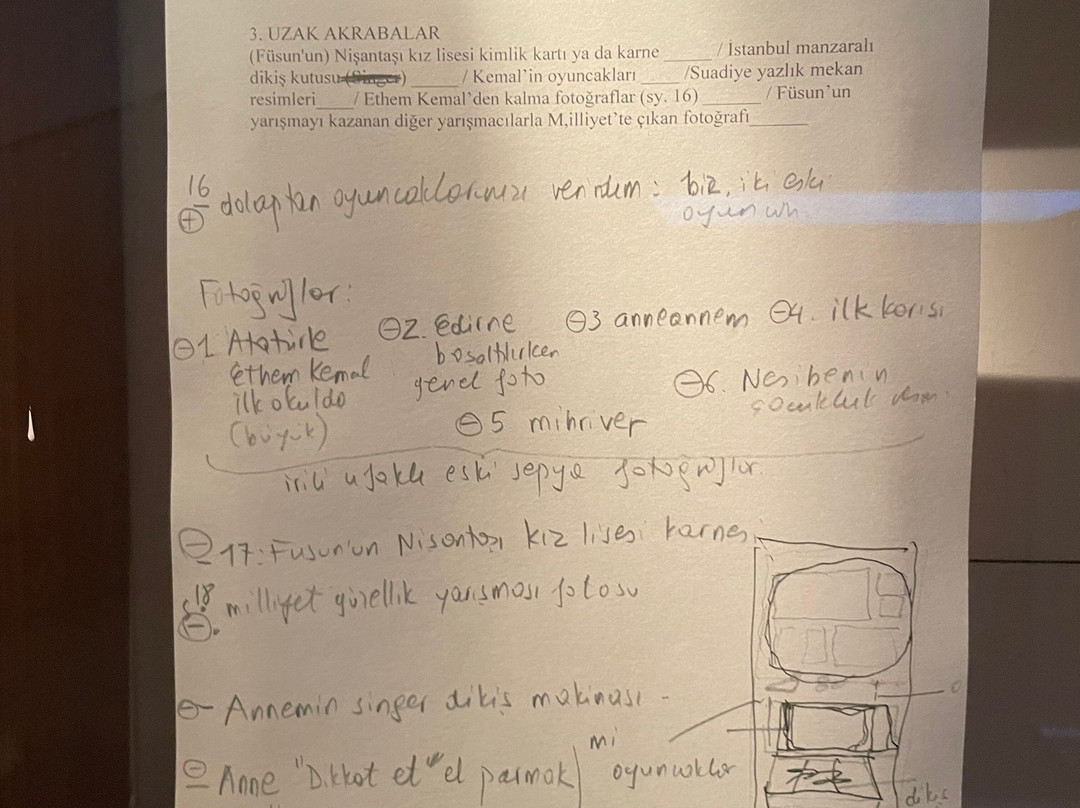 3. UZAK AKRABALAR
(Füsun'un) Nişantaşı kız lisesi kimlik kartı ya da karne ______ / İstanbul manzaralı
dikiş kutusu (Singer) ______ / Kemal'in oyuncakları _____ /Suadiye yazlık mekan
resimleri____ / Ethem Kemal'den kalma fotoğraflar (sy. 16) _______ / Füsun'un
yarışmayı kazanan diğer yarışmacılarla M,illiyet'te çıkan fotoğrafı_______
16 dolaptan oyuncaklarınızı verirdim: biz, iki eski
oyuncak
Fotoğraflar:
1 Atatürk 2. Edirne 3 anneannem 4. ilk karısı
Ethem Kemal boşaltılırken
ilk okulda genel foto 6. Nesibenin
(büyük) çocukluk
5 mihriver
irili ufaklı eski sepya fotoğraflar.
17: Füsun'un Nişantaşı kız lisesi karnesi
18 milliyet güzellik yarışması fotosu
Annemin singer dikiş makinası -
mi
Anne "Dikkat et" el parmak oyuncaklar
dikiş